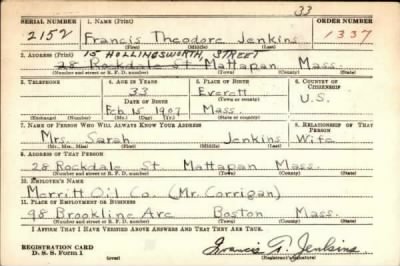 33
SERIAL NUMBER 1. NAME (Print) ORDER NUMBER
2152 Francis Theodore Jenkins 1337
(First) (Middle) (Last)
2. ADDRESS (Print) 15 HOLLINGSWORTH, STREET
28 Rockdale St. Mattapan Mass.
(Number and street or R. F. D. number) (Town) (County) (State)
3. TELEPHONE 4. AGE IN YEARS 5. PLACE OF BIRTH 6. COUNTRY OF CITIZENSHIP
33 Everett
DATE OF BIRTH (Town or county) U.S.
Feb. 15 1907 Mass.
(Exchange) (Number) (Mo.) (Day) (Yr.) (State or country)
7. NAME OF PERSON WHO WILL ALWAYS KNOW YOUR ADDRESS 8. RELATIONSHIP OF THAT PERSON
Mrs. Sarah Jenkins Wife
(Mr., Mrs., Miss) (First) (Middle) (Last)
9. ADDRESS OF THAT PERSON
28 Rockdale St. Mattapan Mass.
(Number and street or R. F. D. number) (Town) (County) (State)
10. EMPLOYER'S NAME
Merritt Oil Co. (Mr. Corrigan)
11. PLACE OF EMPLOYMENT OR BUSINESS
98 Brookline Ave Boston Mass.
(Number and street or R. F. D. number) (Town) (County) (State)
I AFFIRM THAT I HAVE VERIFIED ABOVE ANSWERS AND THAT THEY ARE TRUE.
REGISTRATION CARD
D. S. S. Form 1 (over) Francis T. Jenkins
(Registrant's signature)